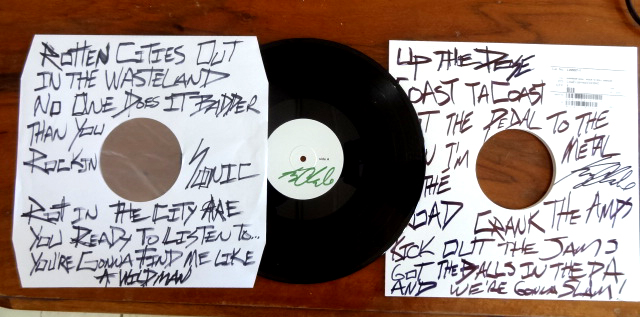 ROTTEN CITIES OUT
IN THE WASTELAND
NO ONE DOES IT BADDER
THAN YOU
ROCKIN
SONIC
RIOT IN THE CITY ARE
YOU READY TO LISTEN TO...
YOU'RE GONNA FIND ME LIKE
A WILDMAN
UP THE
COAST TA COAST
THE PEDAL TO THE
METAL
I'M
THE
ROAD
CRANK THE AMPS
KICK OUT THE JAMS
GOT THE BALLS IN THE PA
AND WE'RE GONNA SLAM!